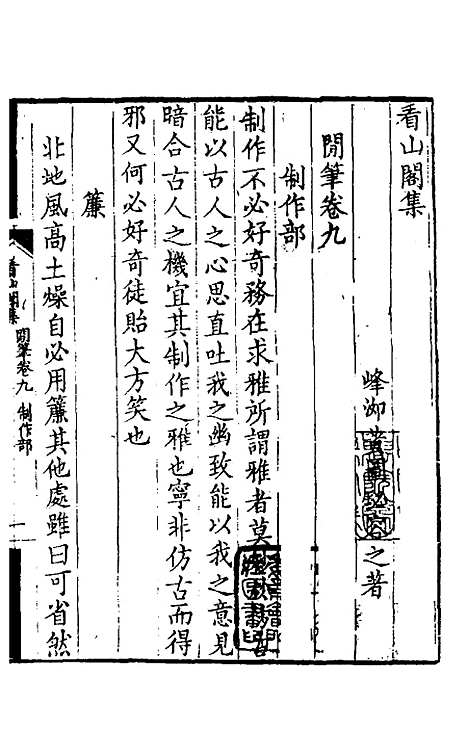 看山閣集
峰泖
之著
閒筆卷九
制作部
制作不必好奇務在求雅所謂雅者莫
能以古人之心思直吐我之幽致能以我之意見
暗合古人之機宜其制作之雅也寧非仿古而得
邪又何必好奇徒貽大方笑也
簾
北地風高土燥自必用簾其他處雖曰可省然
看山閣集 閒筆卷九 制作部 一